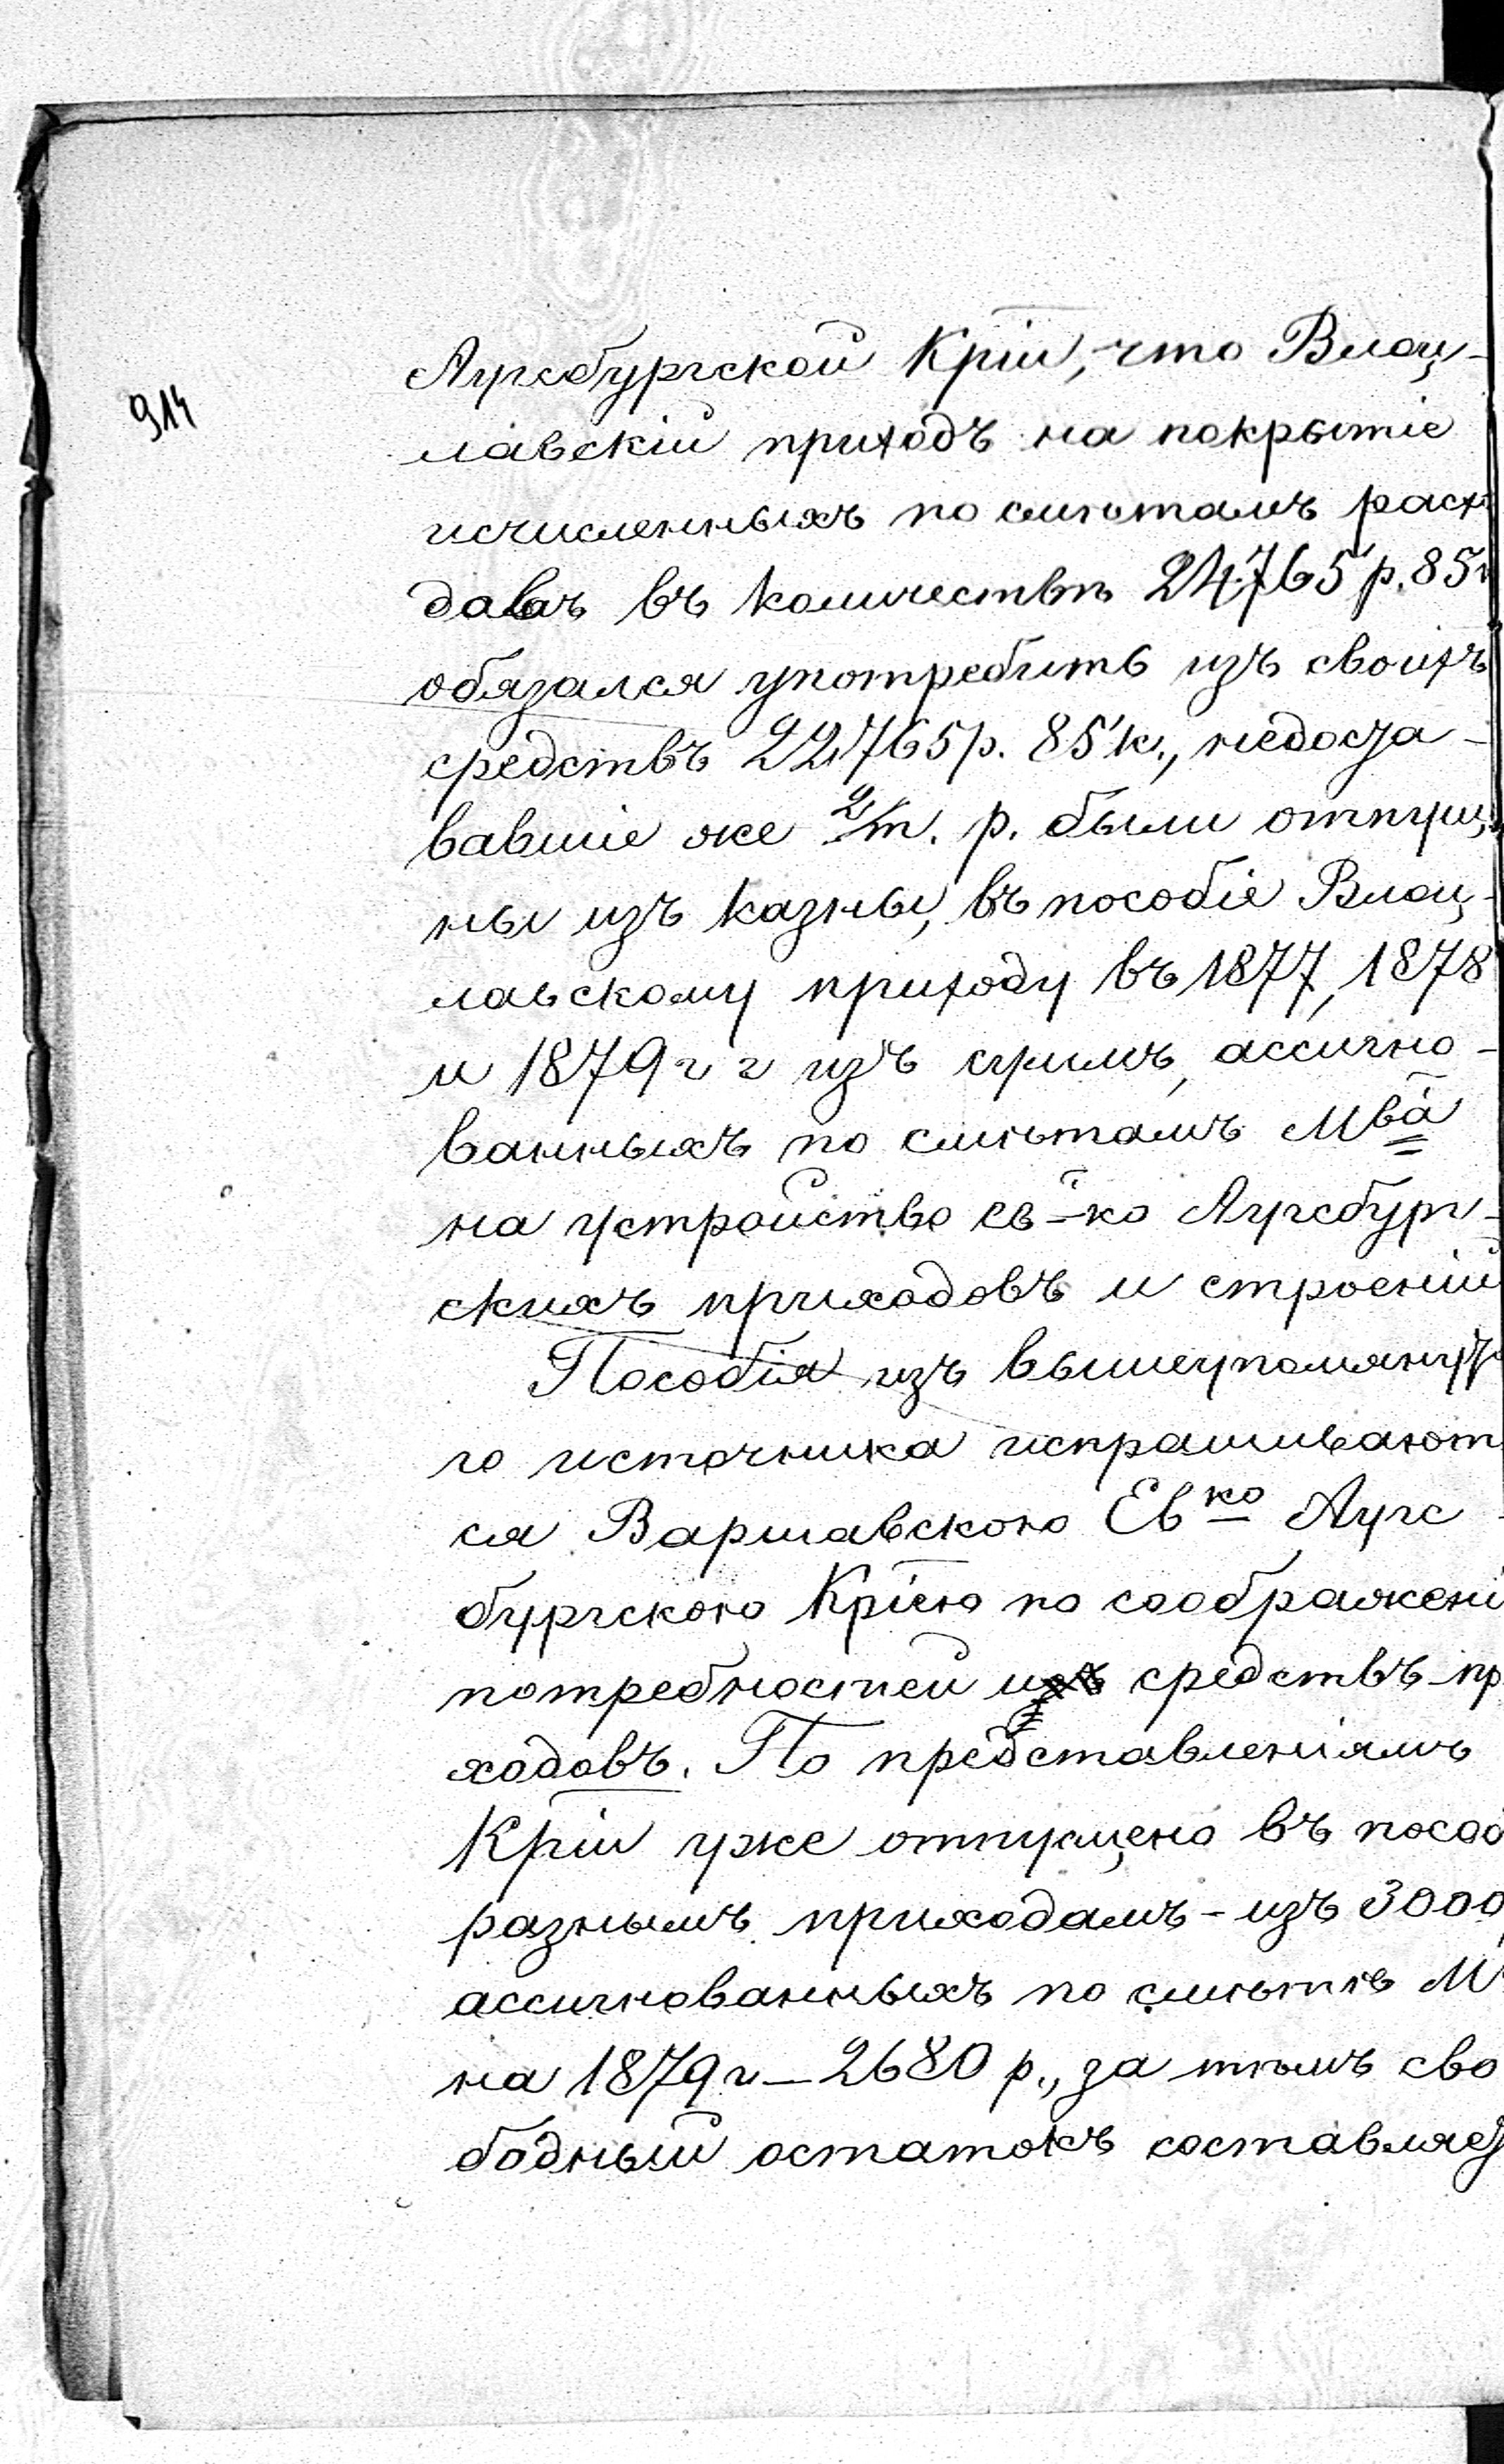 914
Аугсбургской Крiи, что Влоц-
лавскiй приходъ на покрытiе
исчисленныхъ по смѣтамъ расхо
довъ въ количествѣ 24765 р. 85 к
обязался употребить изъ своихъ
средствъ 22765 р. 85 к., недоста-
вавшiе же 2/т. р. были отпуще
ны изъ казны, въ пособiе Влоц-
лавскому приходу въ 1877, 1878
и 1879 г г изъ суммъ, ассигно-
ванныхъ по смѣтамъ Мва
на устройство ев-ко Аугсбург-
скихъ приходовъ и строенiй
Пособiя изъ вышеупомянуто
го источника испрашивают
ся Варшавскою Ев ко Аугс-
бургскою Крiею по соображенi
потребностей и средствъ при
ходовъ. По представленiямъ
Крiи уже отпущено въ пособ
разнымъ приходамъ - изъ 3000
ассигнованныхъ по смѣтѣ М
на 1879 г - 2680 р., за тѣмъ сво
бодный остатокъ составляет